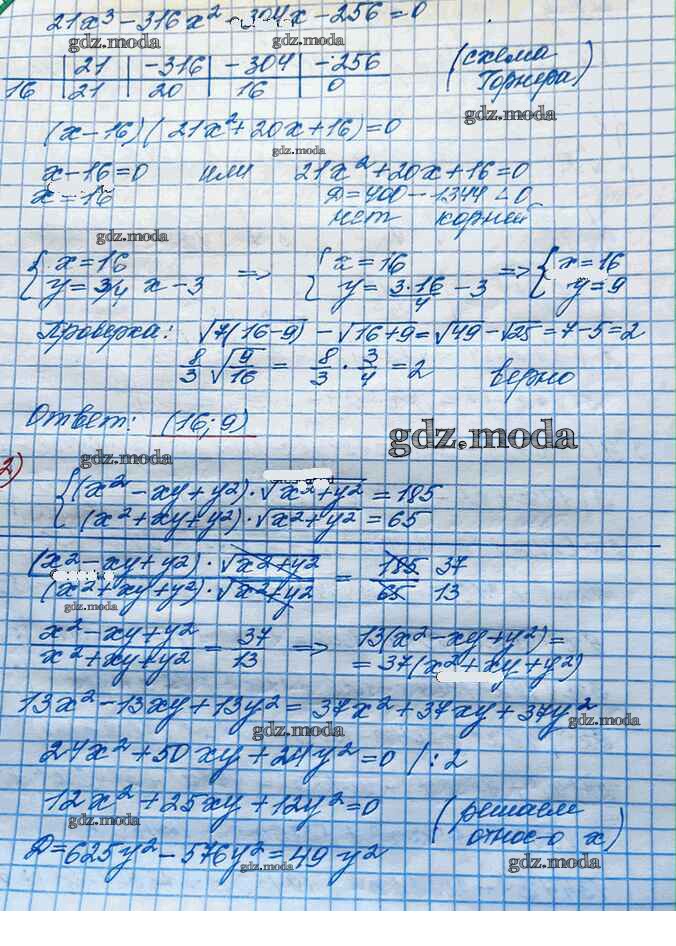 21x³ - 316x² - 304x - 256 = 0
21 | -316 | -304 | -256
16 | 21 | 20 | 16 | 0
(схема Горнера)
gdz.moda
(x-16)(21x²+20x+16)=0
gdz.moda
x-16=0 или 21x²+20x+16=0
x=16 D=400-1344<0
нет корней
gdz.moda
{ x=16 => { x=16 => { x=16
y=3/4 x-3 y=3·16/4 -3 y=9
Проверка: √7(16-9) - √16+9 = √49 - √25 = 7-5=2
8/3 √9/16 = 8/3 · 3/4 = 2 верно
Ответ: (16; 9)
gdz.moda
gdz.moda
2)
{ (x²-xy+y²)·√x²+y² = 185
(x²+xy+y²)·√x²+y² = 65
(x²-xy+y²)·√x²+y² / (x²+xy+y²)·√x²+y² = 185 37 / 65 13
gdz.moda
x²-xy+y² / x²+xy+y² = 37/13 => 13(x²-xy+y²)=
=37(x²+xy+y²)
13x²-13xy+13y²=37x²+37xy+37y²
gdz.moda
24x²+50xy+24y²=0 /:2
gdz.moda
12x²+25xy+12y²=0 (решаем
относ-о x)
gdz.moda
D=625y²-576y²=49y²
gdz.moda